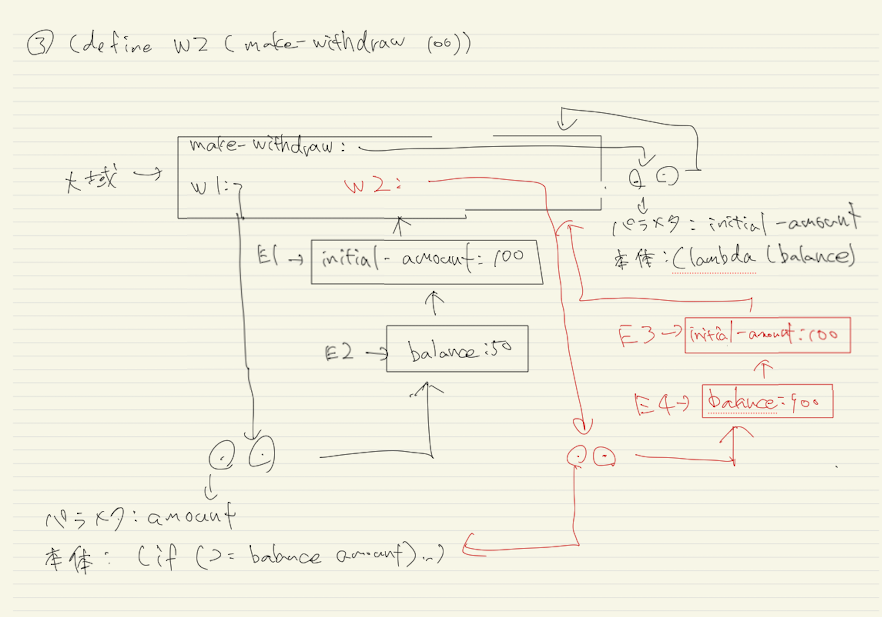 ③ (define W2 (make-withdraw 100))
make-withdraw:
大域
W1:
W2:
パラメタ: initial-amount
本体: (lambda (balance)
E1
initial-amount: 100
E2
balance: 50
E3
initial-amount: 100
E4
balance: 100
パラメタ: amount
本体: (if (>= balance amount)...)